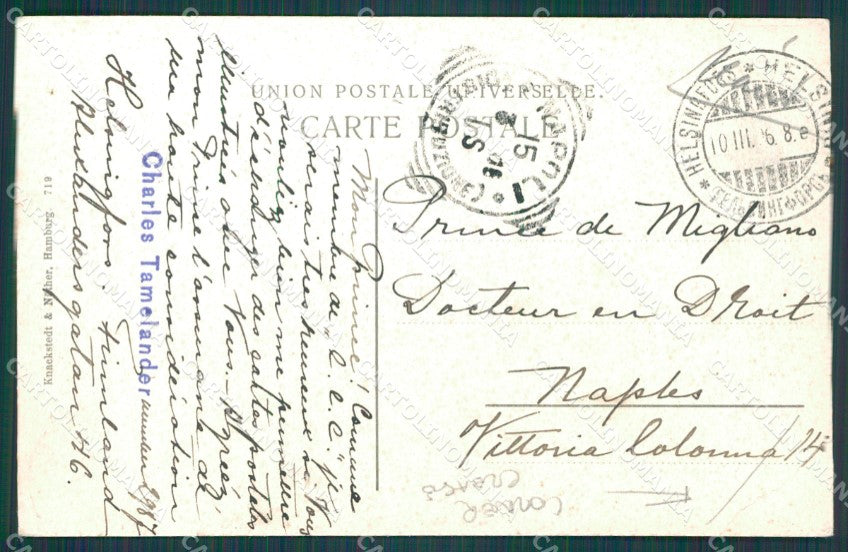 UNION POSTALE UNIVERSELLE.
CARTE POSTALE
HELSINGFORS * HELSINKI
10 III. 6. 8. e
ГЕЛЬСИНГФОРСЪ
NAPOLI
15
3
S
Prince de Migliano
Docteur en Droit
Naples
Vittoria Colonna 14
Mon prince! Comme
membre de "L. C. C." je
serais tres heureux si Vous
vouliez bien me permettre
d'échanger des cartes postales
illustrées avec Vous. – Agréez
mon Prince l'assurance de
ma haute considération
Charles Tamelander
2987
Helsingfors. Finnland
Knackstedt & Näther, Hamburg 719
CARTOLINOMANIA